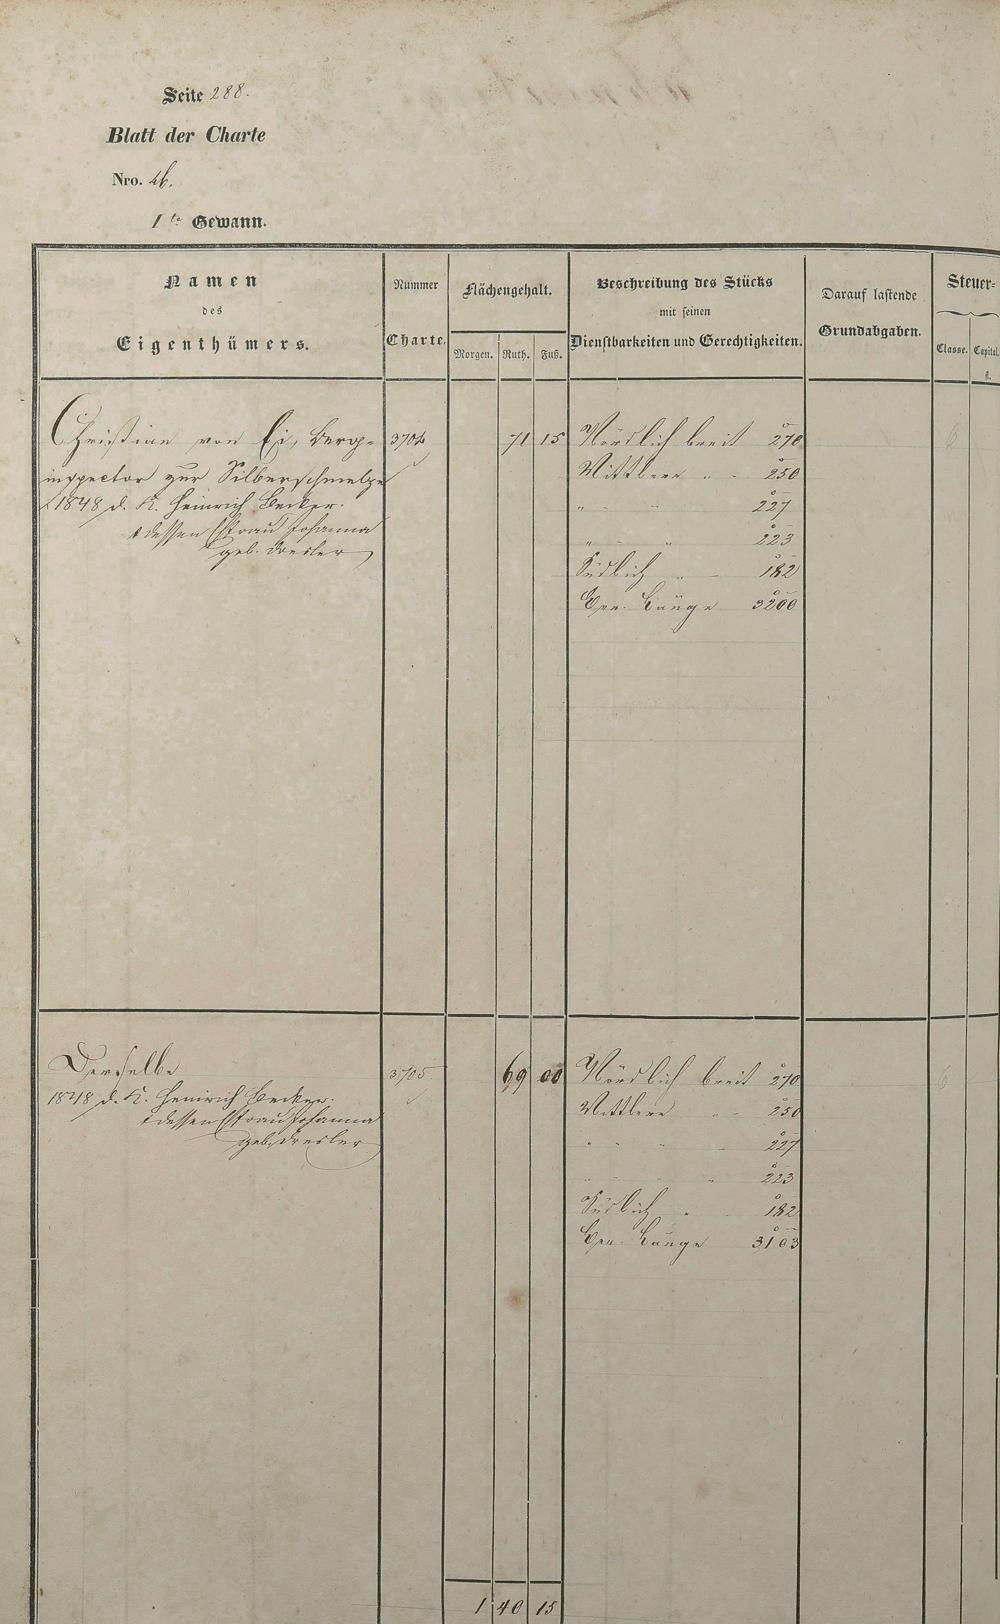 Seite 288.
Blatt der Charte
Nro. 26.
1te Gewann.
Namen
des
Eigenthümers.
Nummer
Charte.
Flächengehalt.
Morgen. Ruth. Fuß.
Beschreibung des Stücks
mit seinen
Dienstbarkeiten und Gerechtigkeiten.
Darauf lastende
Grundabgaben.
Steuer-
Classe. Capital.
fl.
Christian von Ei, Berg- 3704 71 15 Nördlich breit 270 6
inspector zur Silberschmelze Mittlere " - 250
1848 d. K. Heinrich Becker. " - " 227
& dessen Ehefrau Johanna " - " 223
geb. Dresler
Südlich " - 182
Gen. Länge 3200
Derselbe 3705 69 00 Nördlich breit 270 6
1848 d. K. Heinrich Becker. Mittlere " - 250
& dessen Ehefrau Johanna " " - 227
geb. Dresler
" - - " 223
Südlich " - 182
Gen. Länge 3103
1 40 15